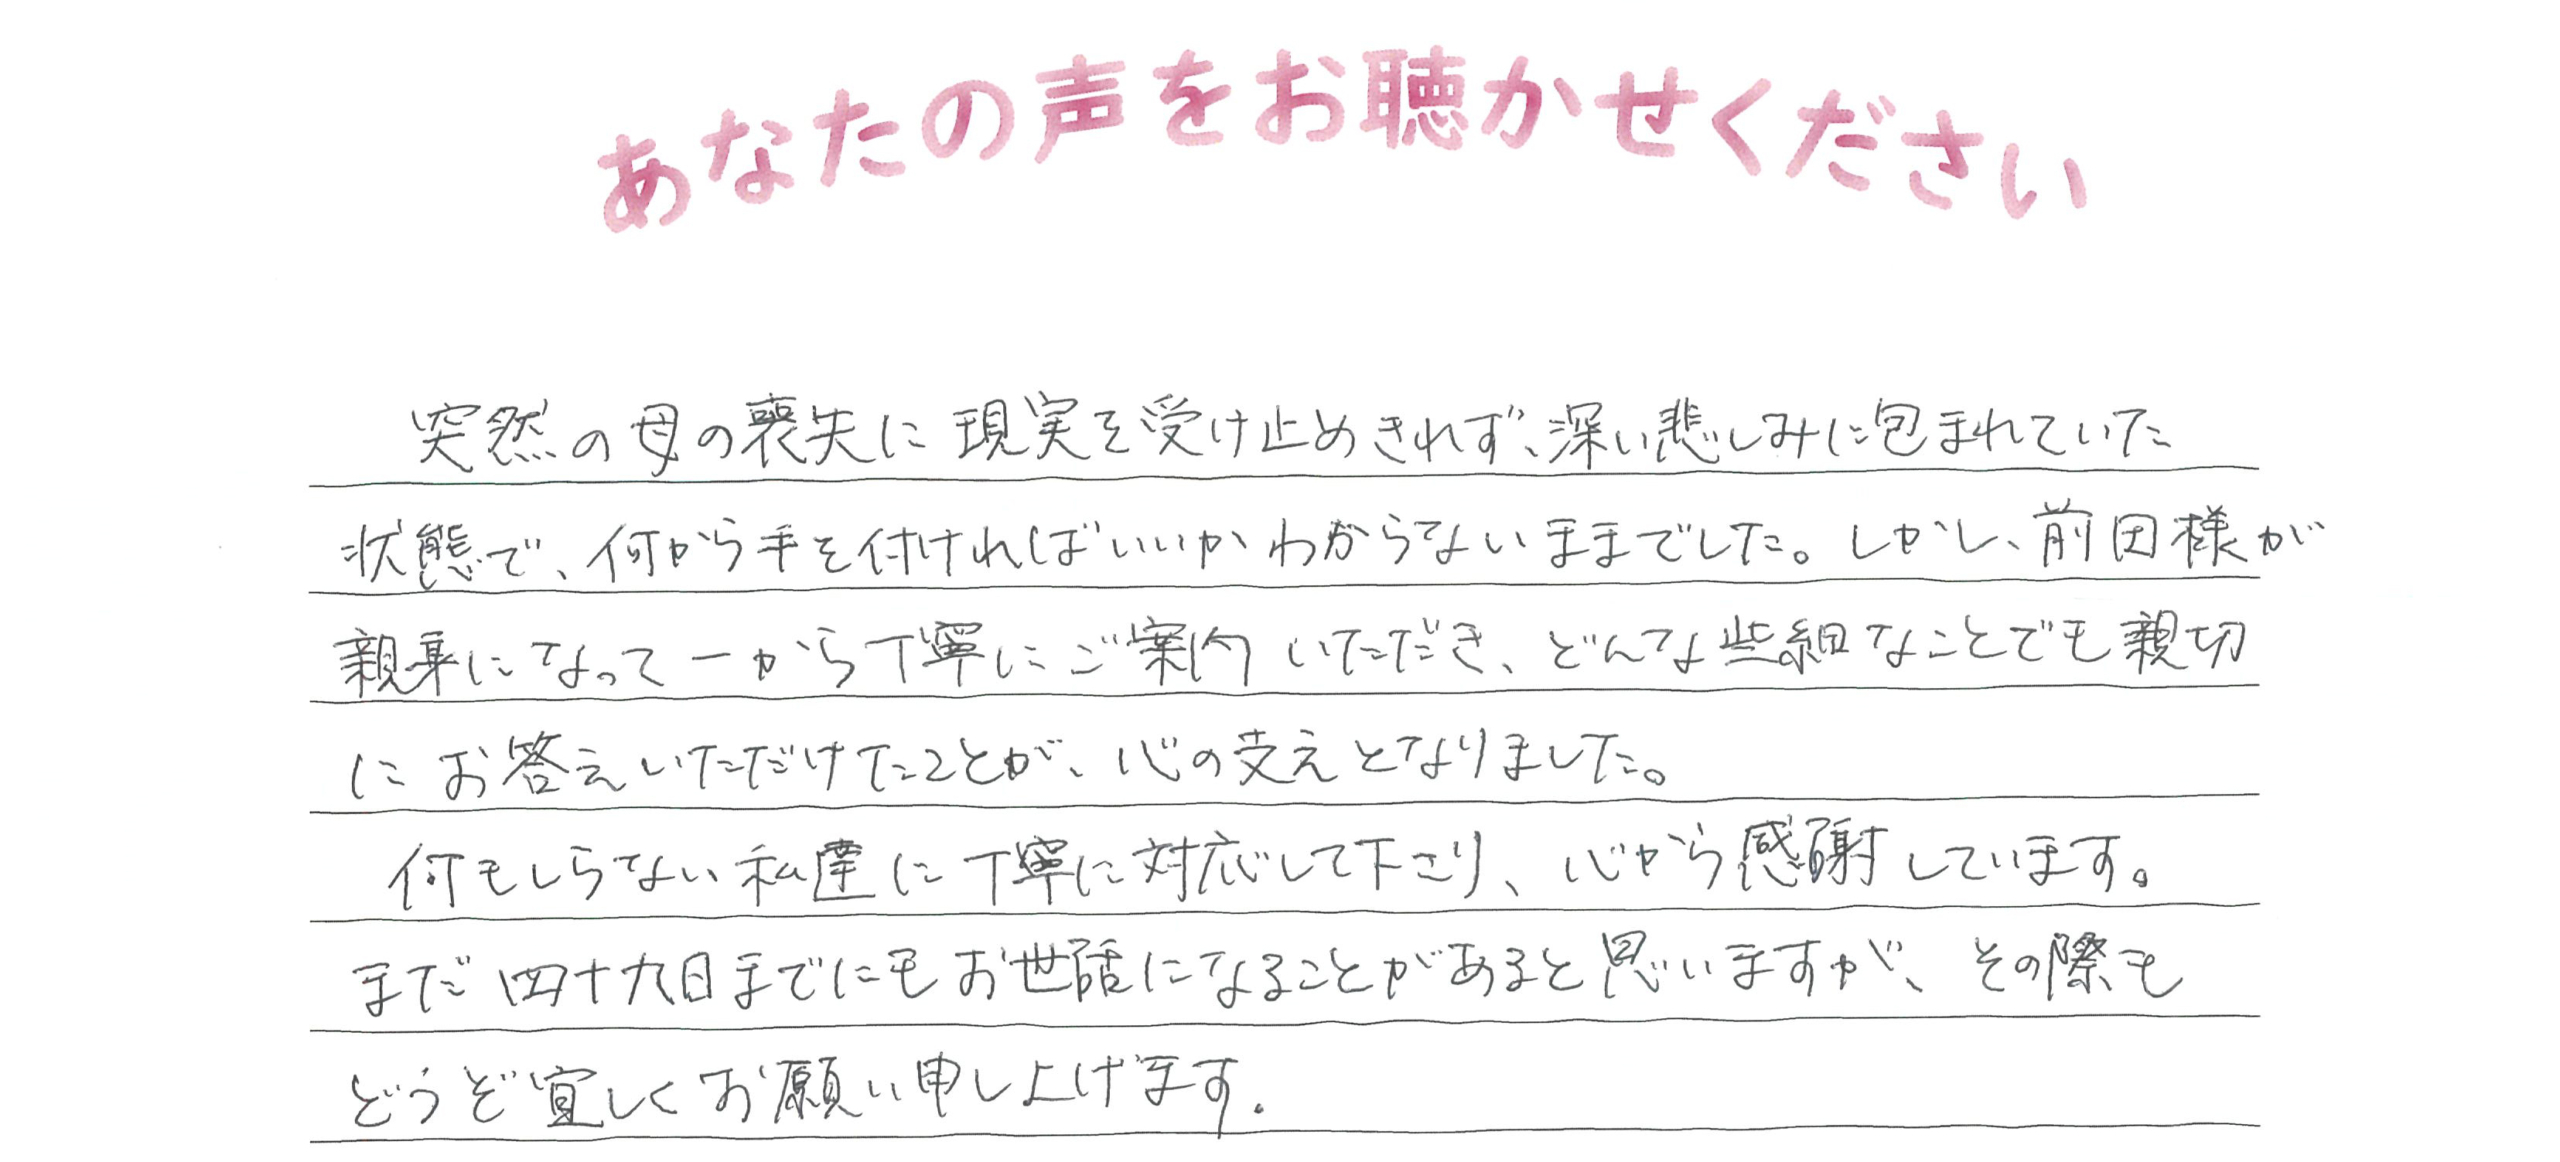 あなたの声をお聴かせください
突然の母の喪失に現実を受け止めきれず、深い悲しみに包まれていた
状態で、何から手を付ければいいかわからないままでした。しかし、前田様が
親身になって一から丁寧にご案内いただき、どんな些細なことでも親切
にお答えいただけたことが、心の支えとなりました。
何もしらない私達に丁寧に対応して下さり、心から感謝しています。
まだ四十九日までにもお世話になることがあると思いますが、その際も
どうぞ宜しくお願い申し上げます.